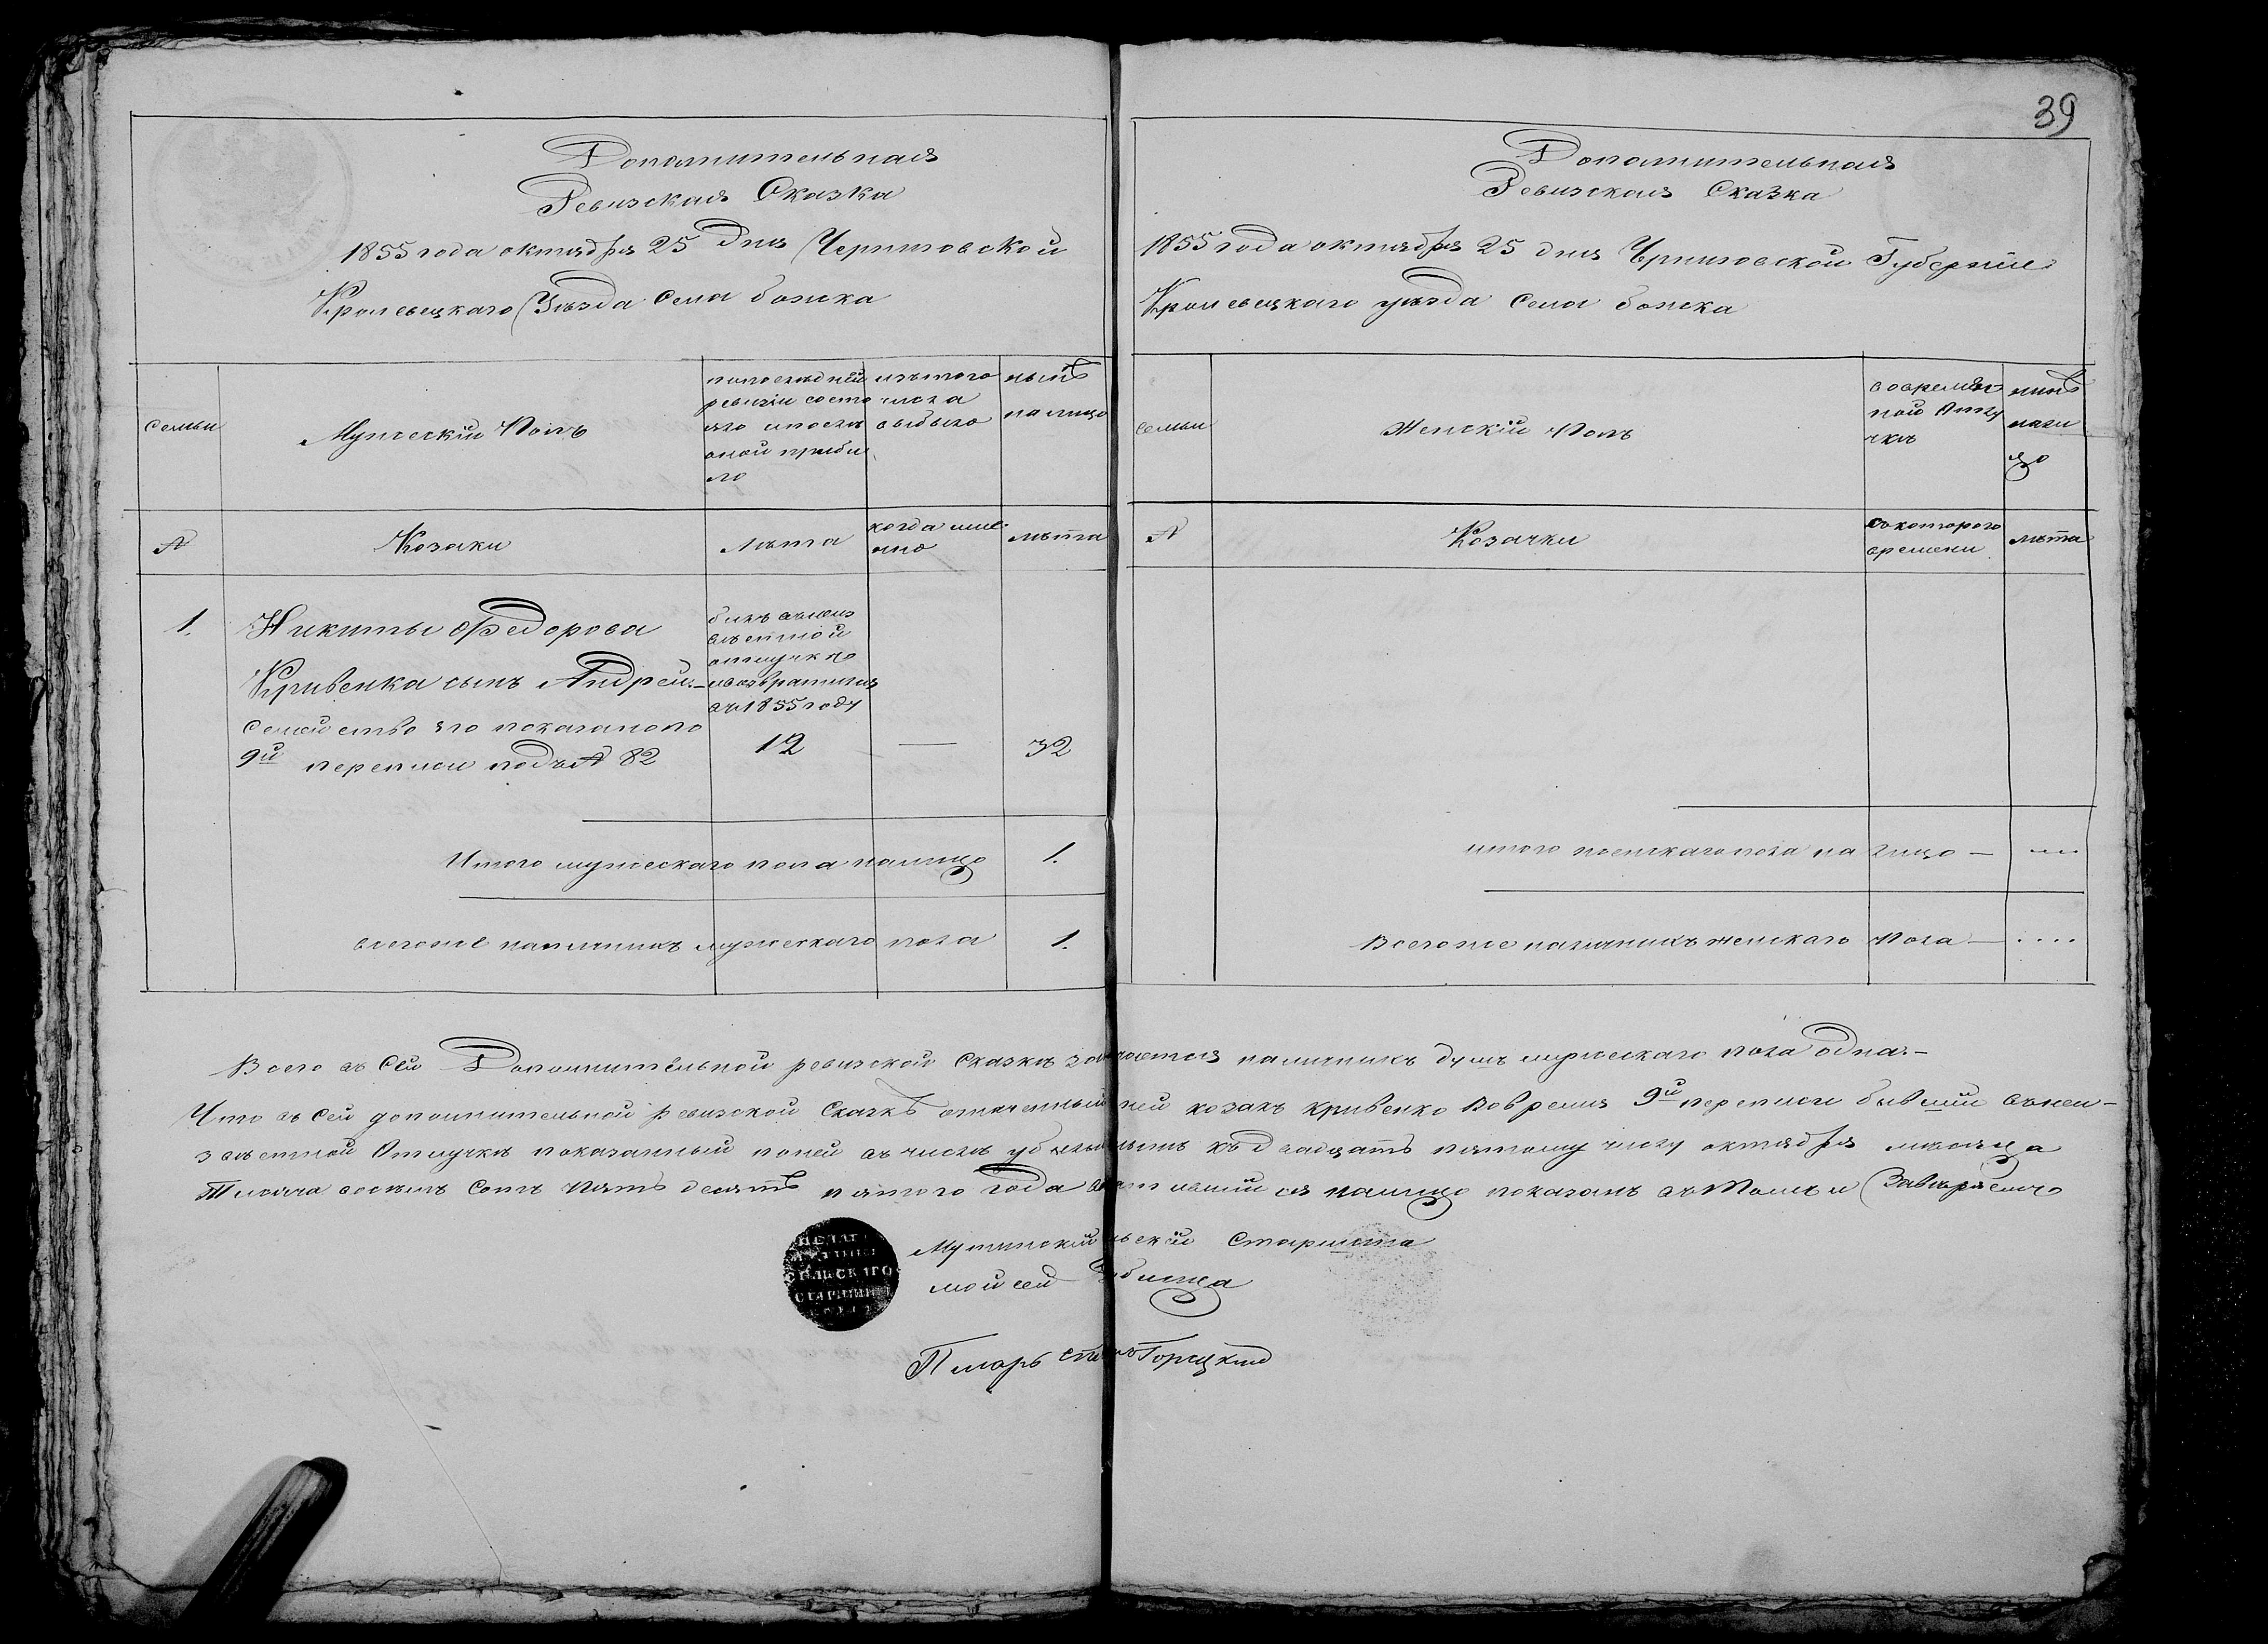 39
Дополнительная
Ревизская Сказка
1855 года октября 25 дня Черниговской
Кролевецкаго Уезда села божка
семьи
Мужескій Полъ
попоследней
ревизіи состо
яло ипосли
оной прибы
ло
изътого
числа
выбыло
ныне
налицо
№
Козаки
лета
когда име
нно
лета
1.
Никиты Федорова
Кривенка сынъ Андрей
Семейство его показанопо
9й переписи подъ № 82
былъ внеиз
вестной
отлучке
ивозвратился
въ 1855 году
12
—
32
Итого мужескаго пола налицо
1.
всегоже наличныхъ мужескаго пола
1.
Дополнительная
Ревизская Сказка
1855 года октября 25 дня Чрниговской Губерніи
Кролевецкаго уезда Села божка
семьи
Женскій Полъ
вовремен
ной Отлу
чке
ныне
нали
цо
№
Козачки
съкоторого
времени
лета
итого женскаго пола на лицо —
Всегоже наличныхъ женскаго Пола —
Всего въ Сей Дополнительной ревизской Сказке наличныхъ душъ мужескаго пола одна
Что въ Сей дополнительной ревизской Сказке означенный козакъ Кривенко Вовремя 9й переписи бывшій внеи-
звестной Отлучке показанный поней въ числе къ двадцать пятому числу октября месяца
Тисяча восемъ Сотъ Пять десятъ пятого Года налицо показанъ въ томъ и Заверяемо
Мутинскій Старшина
моисей
ПЕЧАТ
СЕЛЬСКАГО
СТАРШИНЫ
Писарь Горецкій